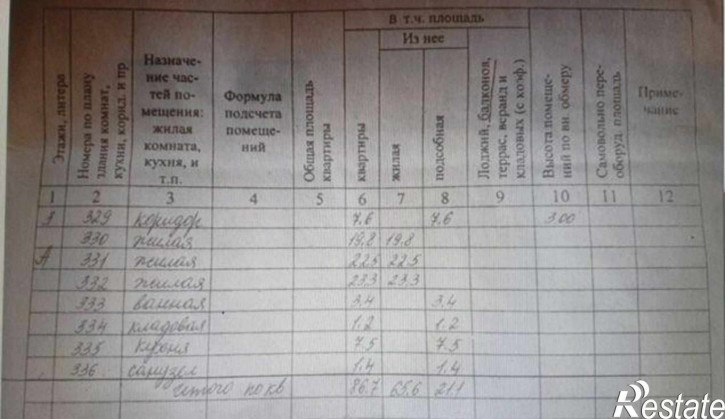 Этажи, литера
Номера по плану здания комнат, кухни, корид. и пр
Назначе-
ние час-
тей по-
мещения:
жилая
комната,
кухня, и
т.п.
Формула
подсчета
помеще-
ний
Общая площадь квартиры
В т.ч. площадь
Из нее
квартиры
жилая
подсобная
Лоджий, балконов, террас, веранд и кладовых (с коэф.)
Высота помеще-
ний по вн. обмеру
Самовольно пере-
оборуд. площадь
Приме-
чание
1 2 3 4 5 6 7 8 9 10 11 12
3 329 коридор 7.6 7.6 3.00
330 жилая 19,8 19,8
А 331 жилая 22.5 22.5
332 жилая 23,3 23,3
333 ванная 3,4 3,4
334 кладовая 1.2 1.2
335 кухня 7.5 7.5
336 санузел 1.4 1.4
итого по кв 86.7 65,6 21.1
Restate